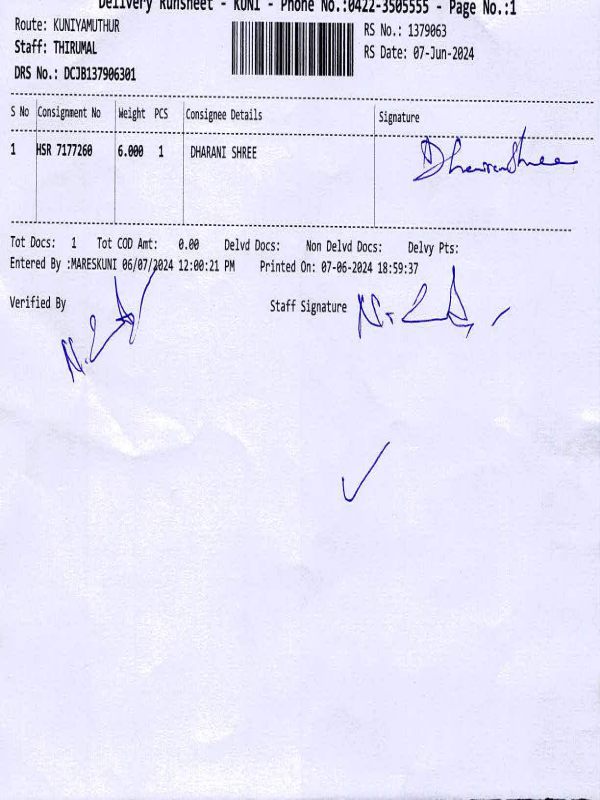 Delivery Runsheet - KUNI - Phone No.:0422-3505555 - Page No.:1
Route: KUNIYAMUTHUR
RS No.: 1379063
Staff: THIRUMAL
RS Date: 07-Jun-2024
DRS No.: DCJB137906301
S No Consignment No Weight PCS Consignee Details Signature
1 HSR 7177260 6.000 1 DHARANI SHREE Dharani Shree
Tot Docs: 1 Tot COD Amt: 0.00 Delvd Docs: Non Delvd Docs: Delvy Pts:
Entered By :MARESKUNI 06/07/2024 12:00:21 PM Printed On: 07-06-2024 18:59:37
Verified By Staff Signature